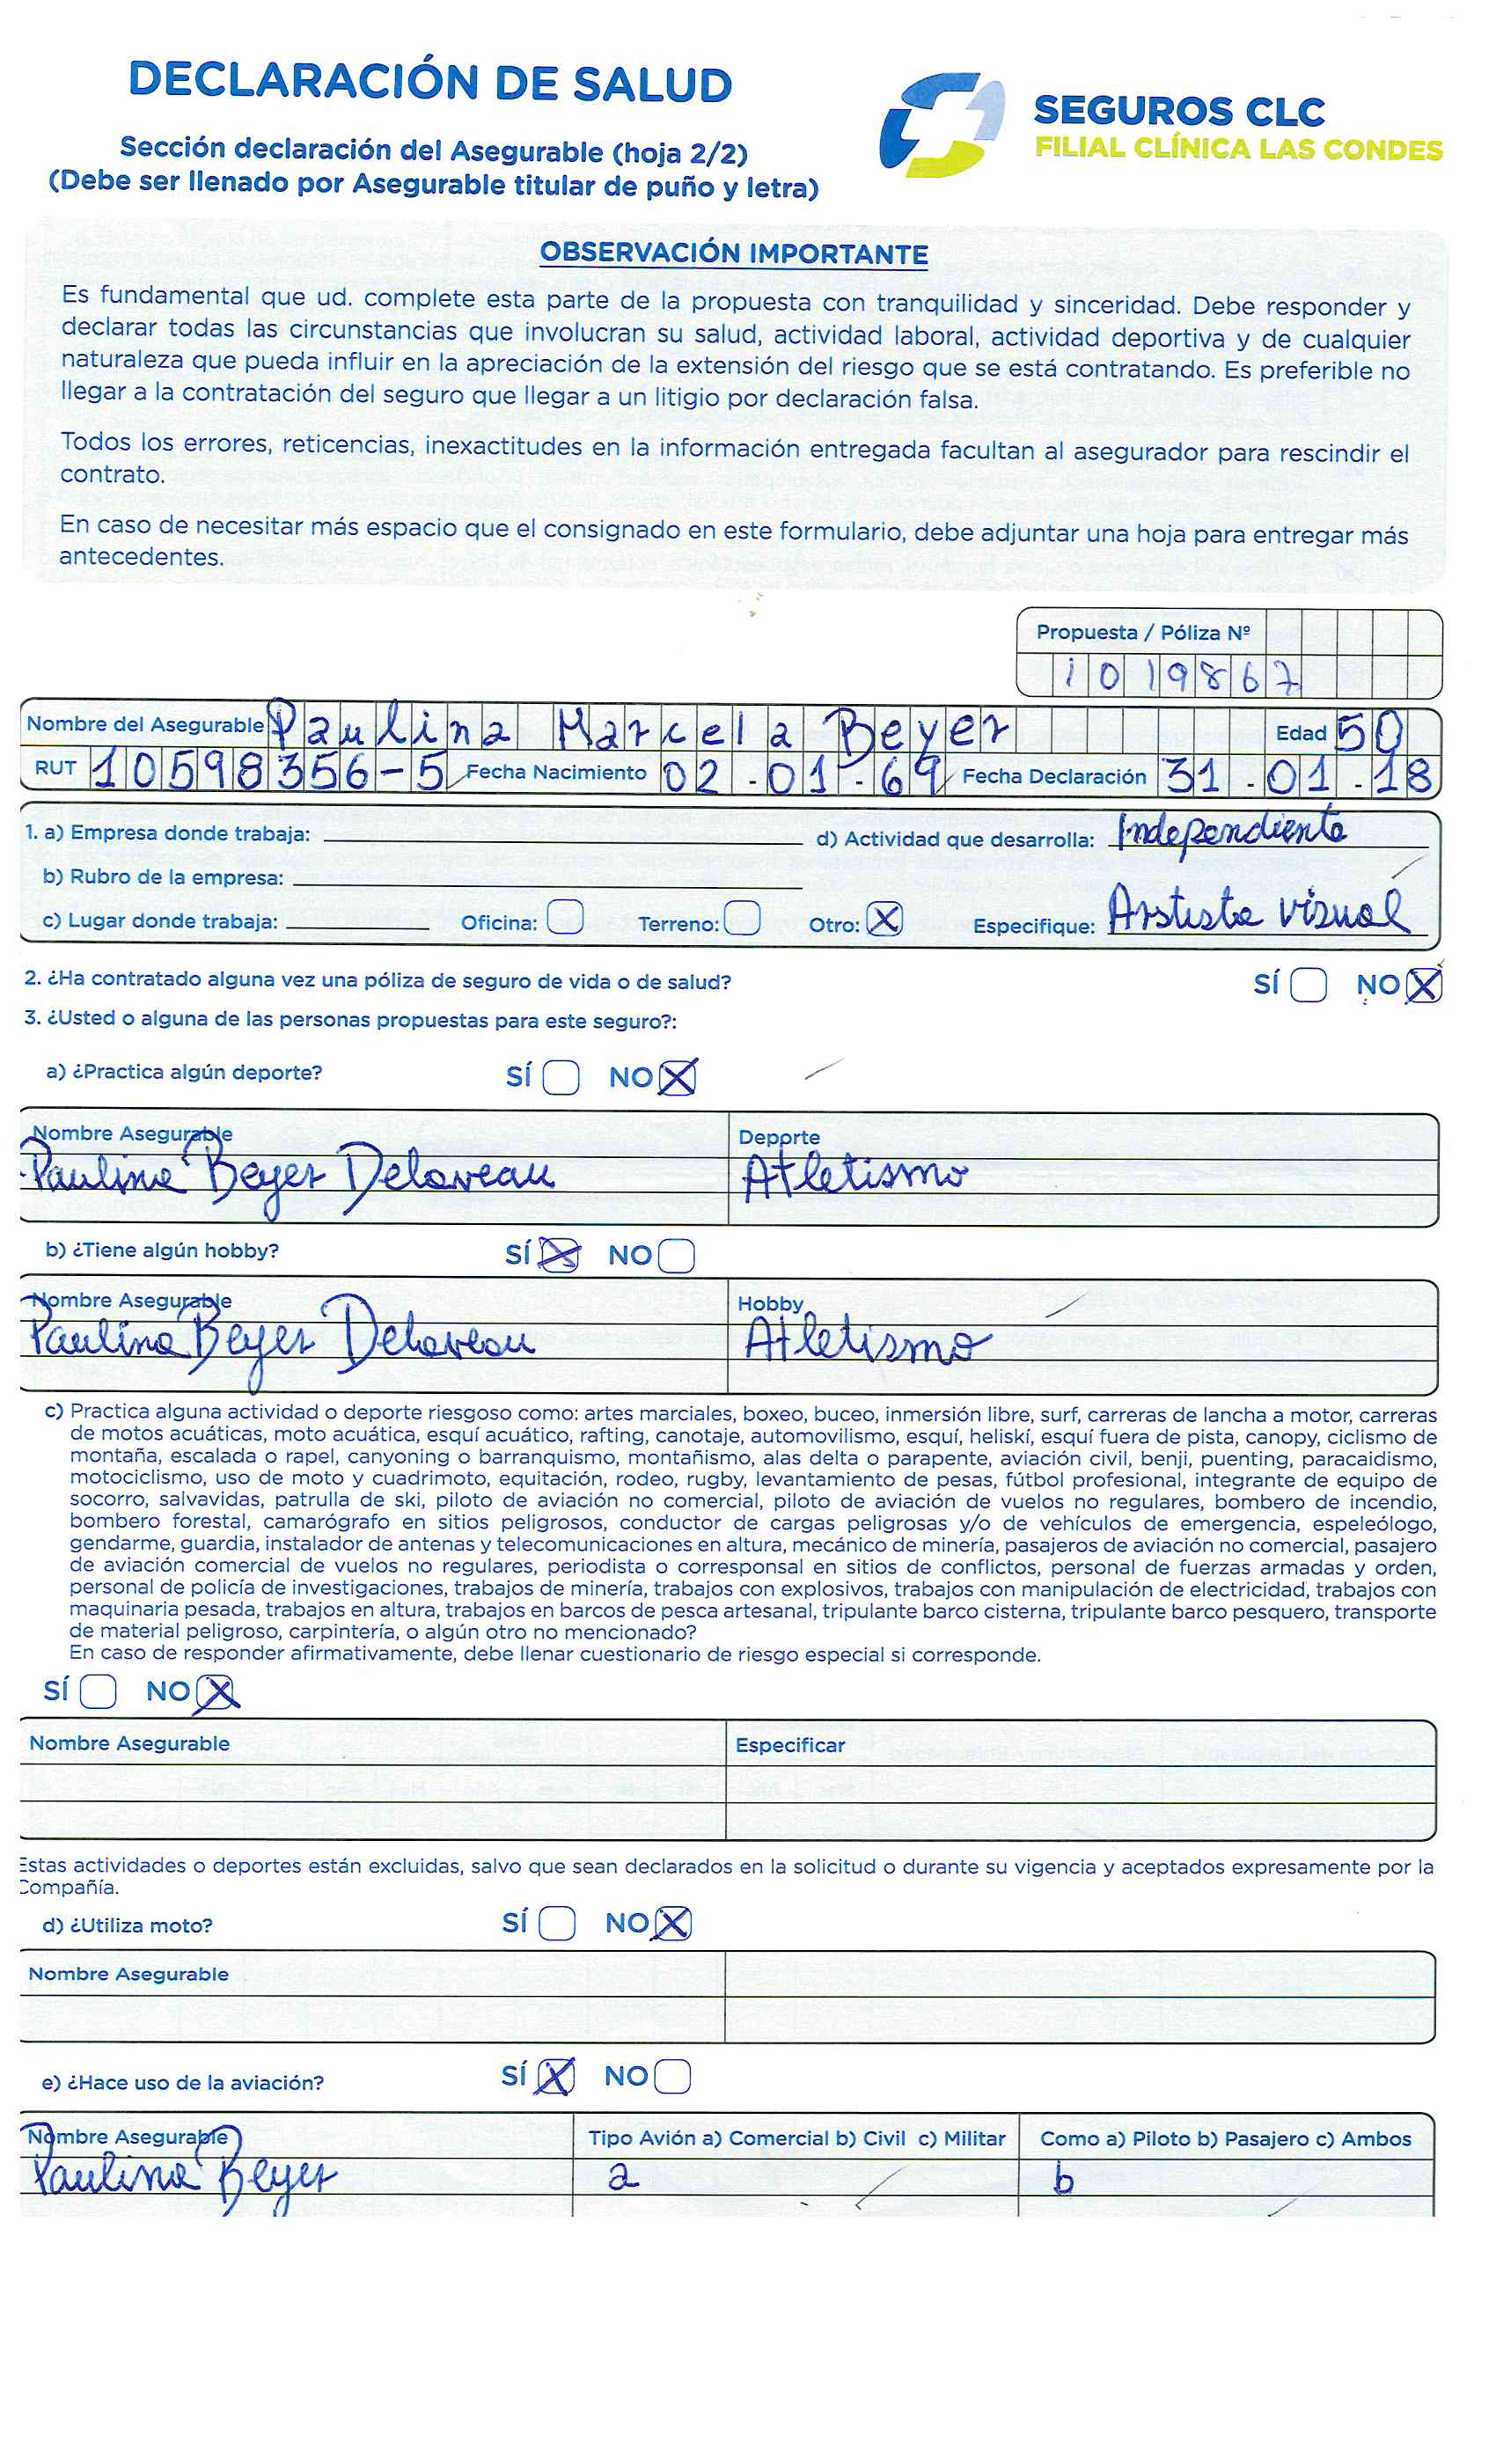 DECLARACIÓN DE SALUD
SEGUROS CLC
FILIAL CLÍNICA LAS CONDES
Sección declaración del Asegurable (hoja 2/2)
(Debe ser llenado por Asegurable titular de puño y letra)
OBSERVACIÓN IMPORTANTE
Es fundamental que ud. complete esta parte de la propuesta con tranquilidad y sinceridad. Debe responder y
declarar todas las circunstancias que involucran su salud, actividad laboral, actividad deportiva y de cualquier
naturaleza que pueda influir en la apreciación de la extensión del riesgo que se está contratando. Es preferible no
llegar a la contratación del seguro que llegar a un litigio por declaración falsa.
Todos los errores, reticencias, inexactitudes en la información entregada facultan al asegurador para rescindir el
contrato.
En caso de necesitar más espacio que el consignado en este formulario, debe adjuntar una hoja para entregar más
antecedentes.
Propuesta / Póliza Nº
1019867
Nombre del Asegurable Paulina Marcela Beyer Edad 50
RUT 10598356-5 Fecha Nacimiento 02-01-69 Fecha Declaración 31.01.18
1. a) Empresa donde trabaja: d) Actividad que desarrolla: Independiente
b) Rubro de la empresa:
c) Lugar donde trabaja: Oficina: Terreno: Otro: X Especifique: Artista visual
2. ¿Ha contratado alguna vez una póliza de seguro de vida o de salud? SÍ NO X
3. ¿Usted o alguna de las personas propuestas para este seguro?:
a) ¿Practica algún deporte? SÍ NO X
Nombre Asegurable Deporte
Paulina Beyer Delaveau Atletismo
b) ¿Tiene algún hobby? SÍ X NO
Nombre Asegurable Hobby
Paulina Beyer Delaveau Atletismo
c) Practica alguna actividad o deporte riesgoso como: artes marciales, boxeo, buceo, inmersión libre, surf, carreras de lancha a motor, carreras
de motos acuáticas, moto acuática, esquí acuático, rafting, canotaje, automovilismo, esquí, heliskí, esquí fuera de pista, canopy, ciclismo de
montaña, escalada o rapel, canyoning o barranquismo, montañismo, alas delta o parapente, aviación civil, benji, puenting, paracaidismo,
motociclismo, uso de moto y cuadrimoto, equitación, rodeo, rugby, levantamiento de pesas, fútbol profesional, integrante de equipo de
socorro, salvavidas, patrulla de ski, piloto de aviación no comercial, piloto de aviación de vuelos no regulares, bombero de incendio,
bombero forestal, camarógrafo en sitios peligrosos, conductor de cargas peligrosas y/o de vehículos de emergencia, espeleólogo,
gendarme, guardia, instalador de antenas y telecomunicaciones en altura, mecánico de minería, pasajeros de aviación no comercial, pasajero
de aviación comercial de vuelos no regulares, periodista o corresponsal en sitios de conflictos, personal de fuerzas armadas y orden,
personal de policía de investigaciones, trabajos de minería, trabajos con explosivos, trabajos con manipulación de electricidad, trabajos con
maquinaria pesada, trabajos en altura, trabajos en barcos de pesca artesanal, tripulante barco cisterna, tripulante barco pesquero, transporte
de material peligroso, carpintería, o algún otro no mencionado?
En caso de responder afirmativamente, debe llenar cuestionario de riesgo especial si corresponde.
SÍ NO X
Nombre Asegurable Especificar
Estas actividades o deportes están excluidas, salvo que sean declarados en la solicitud o durante su vigencia y aceptados expresamente por la
Compañía.
d) ¿Utiliza moto? SÍ NO X
Nombre Asegurable
e) ¿Hace uso de la aviación? SÍ X NO
Nombre Asegurable Tipo Avión a) Comercial b) Civil c) Militar Como a) Piloto b) Pasajero c) Ambos
Paulina Beyer a b